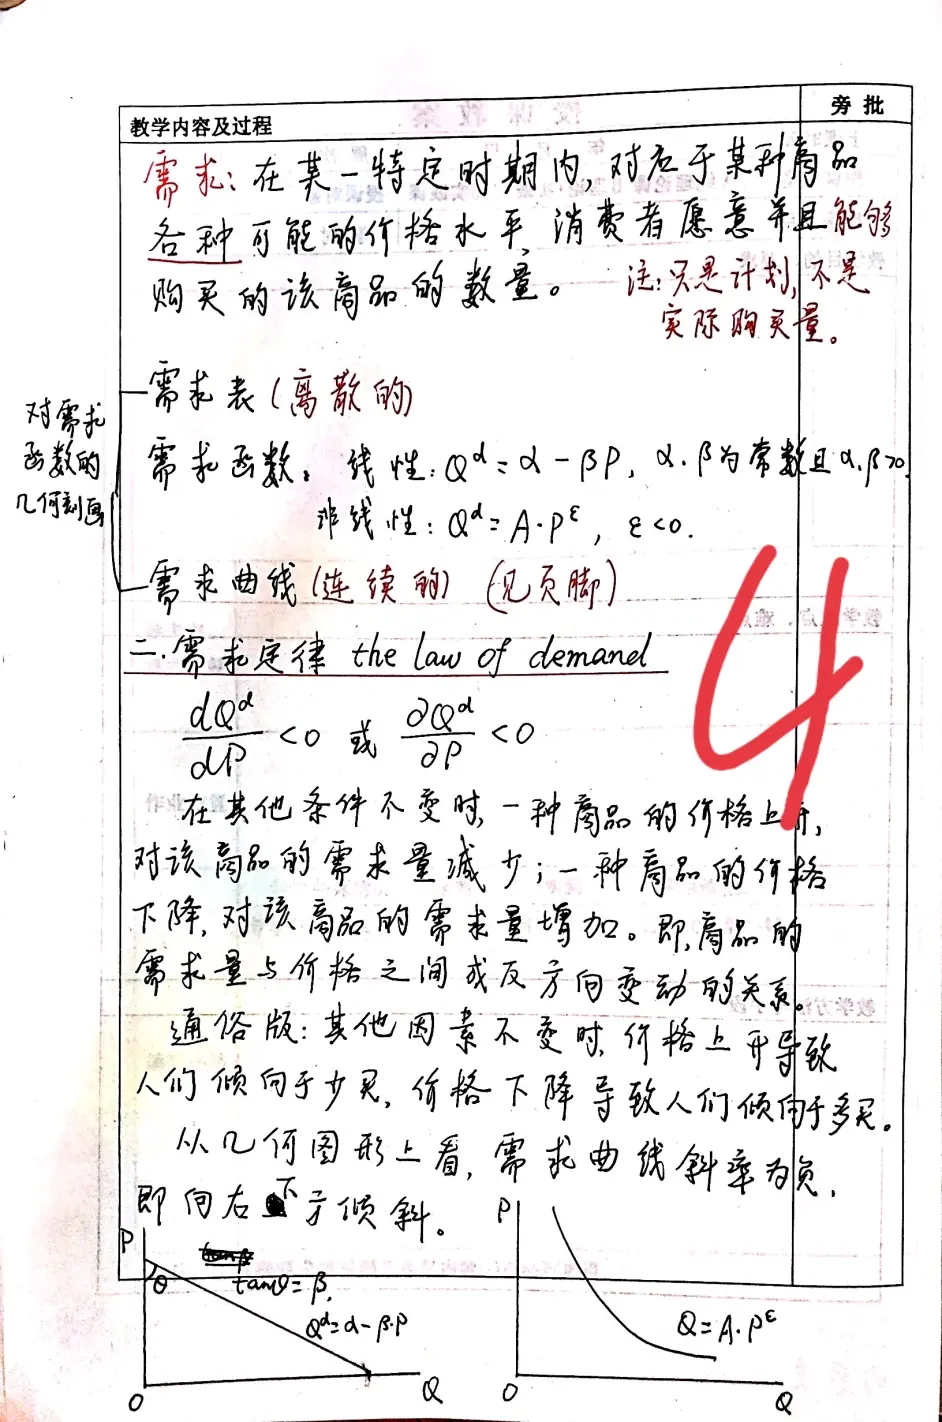 教学内容及过程
旁 批
需求:在某一特定时期内,对应于某种商品
各种可能的价格水平,消费者愿意并且能够
购买的该商品的数量。
注:只是计划,不是
实际购买量。
对需求
函数的
几何刻画
需求表(离散的)
需求函数。线性:Qᵈ=α-βP,α.β为常数且α.β>0.
非线性:Qᵈ=A·Pᵋ, ε<0.
需求曲线(连续的) (见页脚)
二.需求定律 the law of demand
dQᵈ/dP<0 或 ∂Qᵈ/∂P<0
在其他条件不变时,一种商品的价格上升,
对该商品的需求量减少;一种商品的价格
下降,对该商品的需求量增加。即,商品的
需求量与价格之间成反方向变动的关系。
通俗版:其他因素不变时,价格上升导致
人们倾向于少买,价格下降导致人们倾向于多买。
从几何图形上看,需求曲线斜率为负,
即向右下方倾斜。
4
P
θ
tanθ=β.
Qᵈ=α-β·P
O
Q
P
Q=A·Pᵋ
O
Q